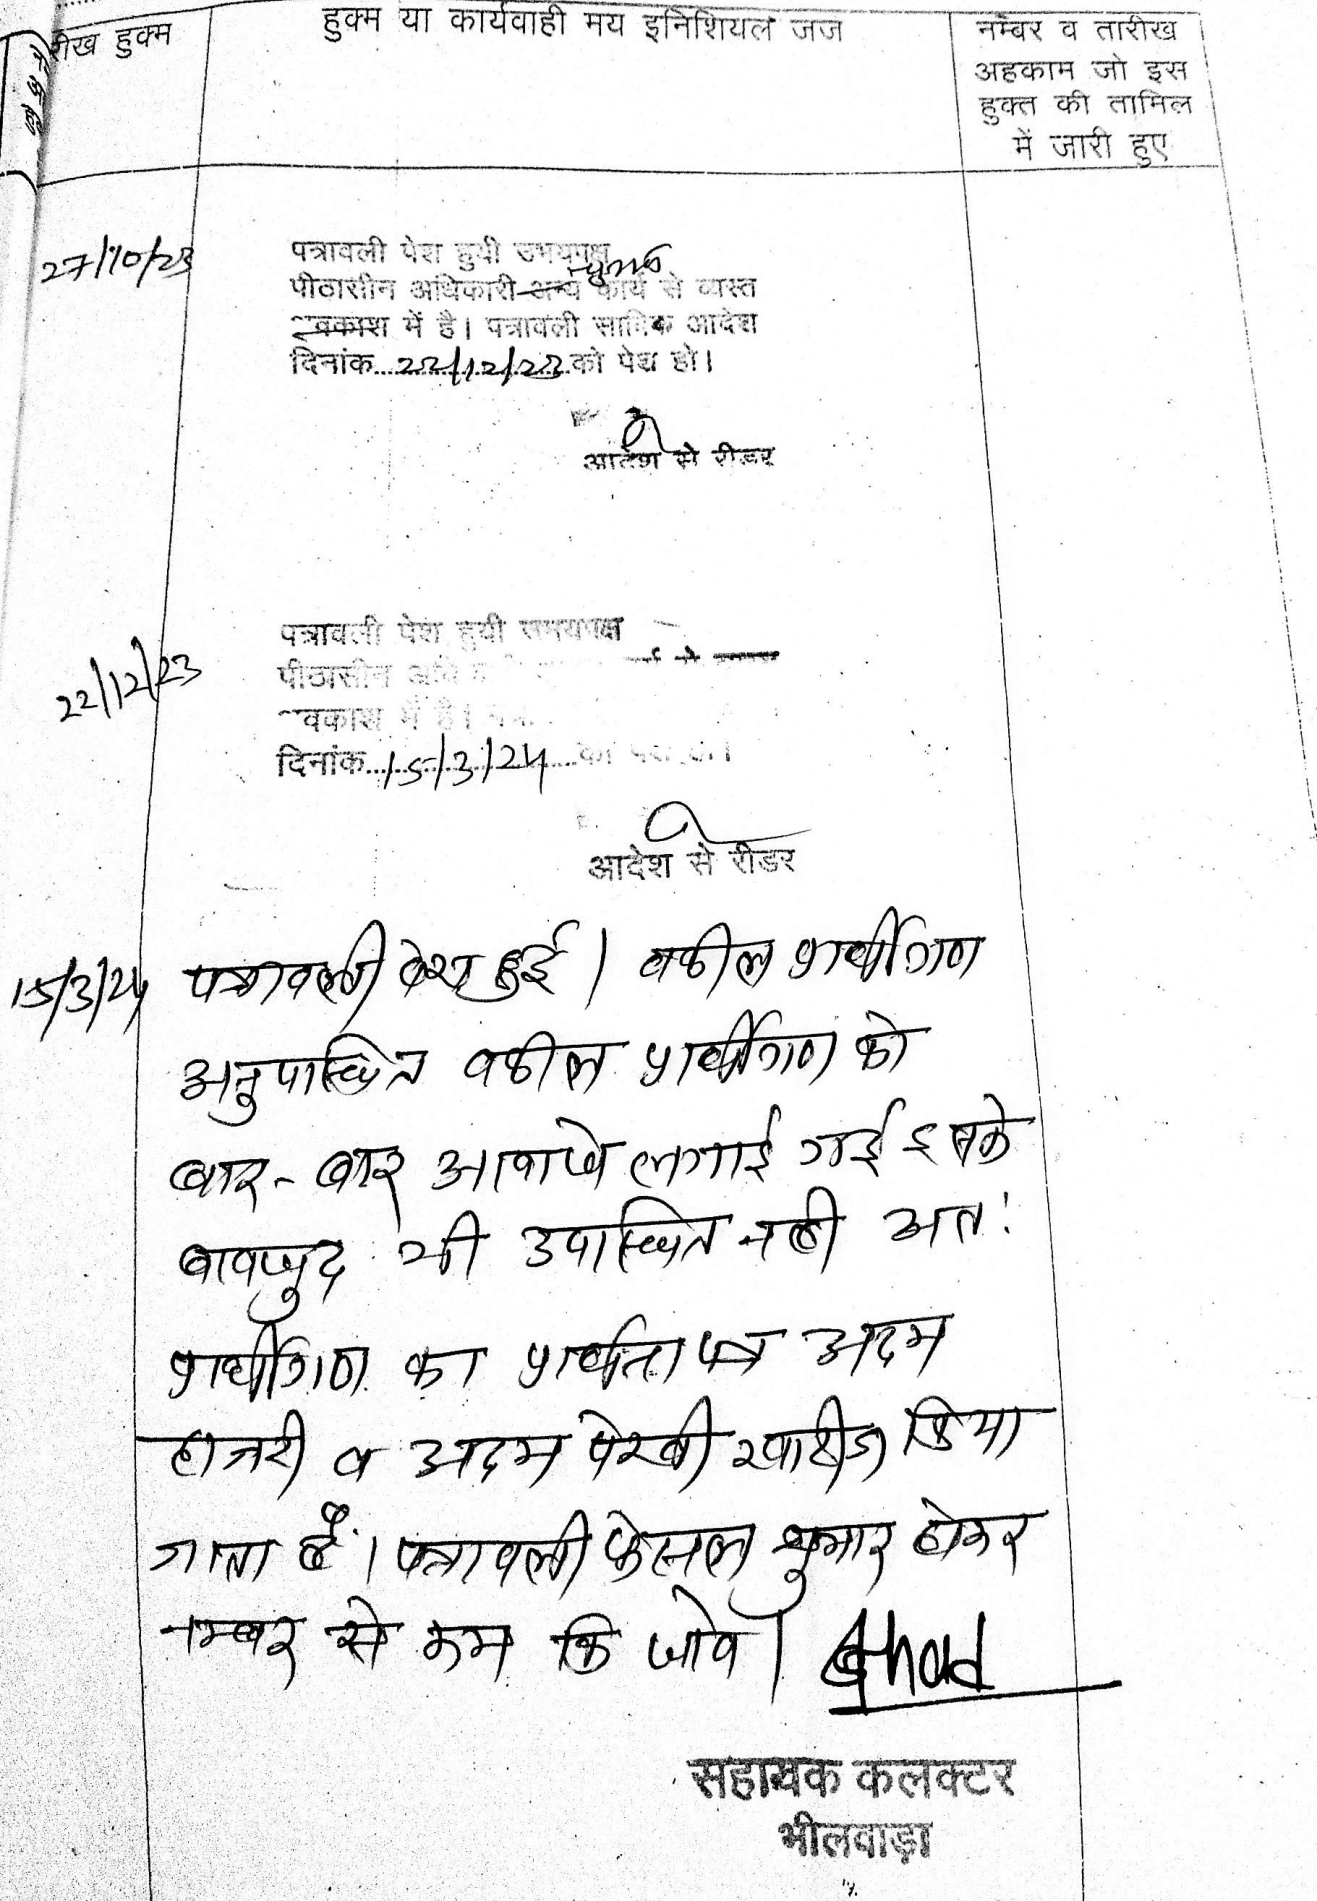 रीख हुक्म
हुक्म या कार्यवाही मय इनिशियल जज
नम्बर व तारीख
अहकाम जो इस
हुक्त की तामिल
में जारी हुए
27/10/23
पत्रावली पेश हुयी उभयपक्ष
पीठासीन अधिकारी अन्य कार्य से व्यस्त
अवकाश में है। पत्रावली साबिक आदेश
दिनांक....22/12/23....को पेश हो।
आदेश से रीडर
22/12/23
पत्रावली पेश हुयी उभयपक्ष
पीठासीन
अवकाश में है।
दिनांक....15/3/24....को पेश हो।
आदेश से रीडर
15/3/24 पत्रावली पेश हुई। वकील प्रार्थीगण
अनुपास्थित वकील प्रार्थीगण को
बार-बार आवाजे लगाई गई इसके
बावजुद भी उपास्थित नही अतः
प्रार्थीगण का प्रार्थना पत्र अदम
हाजरी व अदम पेरवी खारीज किया
जाता है। पत्रावली फेसल शुमार होकर
नम्बर से कम कि जावे।
सहायक कलक्टर
भीलवाड़ा